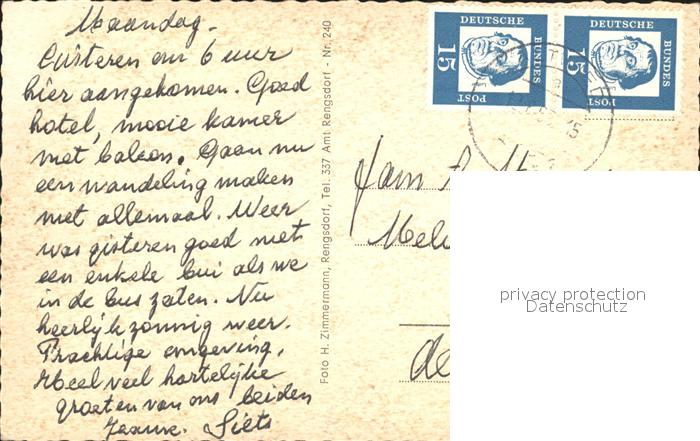 Maandag.
Gisteren om 6 uur
hier aangekomen. Goed
hotel, mooie kamer
met balcon. Gaan nu
een wandeling maken
met allemaal. Weer
was gisteren goed met
een enkele bui als we
in de bus zaten. Nu
heerlijk zonnig weer.
Prachtige omgeving.
Heel veel hartelijke
groeten van ons beiden
Siets
Foto H. Zimmermann, Rengsdorf, Tel. 337 Amt Rengsdorf - Nr. 240
DEUTSCHE BUNDES POST 15
DEUTSCHE BUNDES POST 15
Fam
privacy protection
Datenschutz